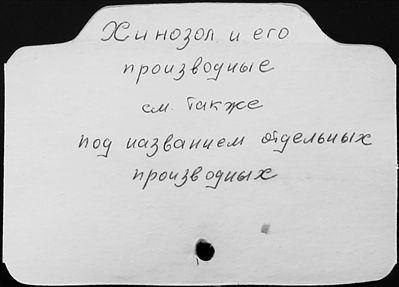 Хинозол и его
производные
см. также
под названием отдельных
производных